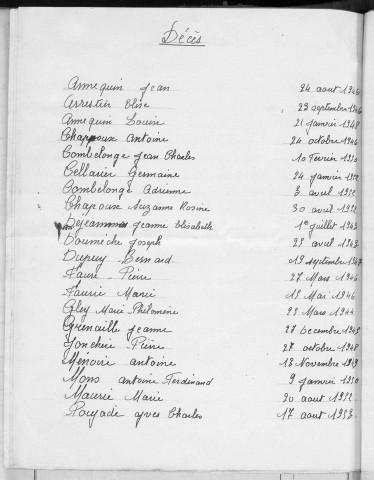 Décès
Annequin Jean 24 aout 1946
Arrestier Elise 23 septembre 1946
Annequin Louise 21 janvier 1948
Chapoux Antoine 24 octobre 1946
Combelonge Jean Charles 10 Février 1950
Cellarier Germaine 24 janvier 1952
Combelonge Adrienne 3 avril 1952
Chapoux Suzanne Rosine 30 avril 1952
Dejeammes Jeanne Elisabeth 1e juillet 1943
Doumèche Joseph 23 avril 1943
Dupuy Bernard 19 septembre 1947
Faure Pierre 27 Mars 1946
Faurie Marie 15 Mai 1946
Gley Marie Philomène 23 Mars 1944
Grenaille Jeanne 27 Decembre 1943
Joncheré Pierre 27 octobre 1948
Ménoire antoine 13 Novembre 1949
Mons antoine Ferdinand 9 janvier 1950
Maurie Marie 20 aout 1952
Poujade yves Charles 17 aout 1953